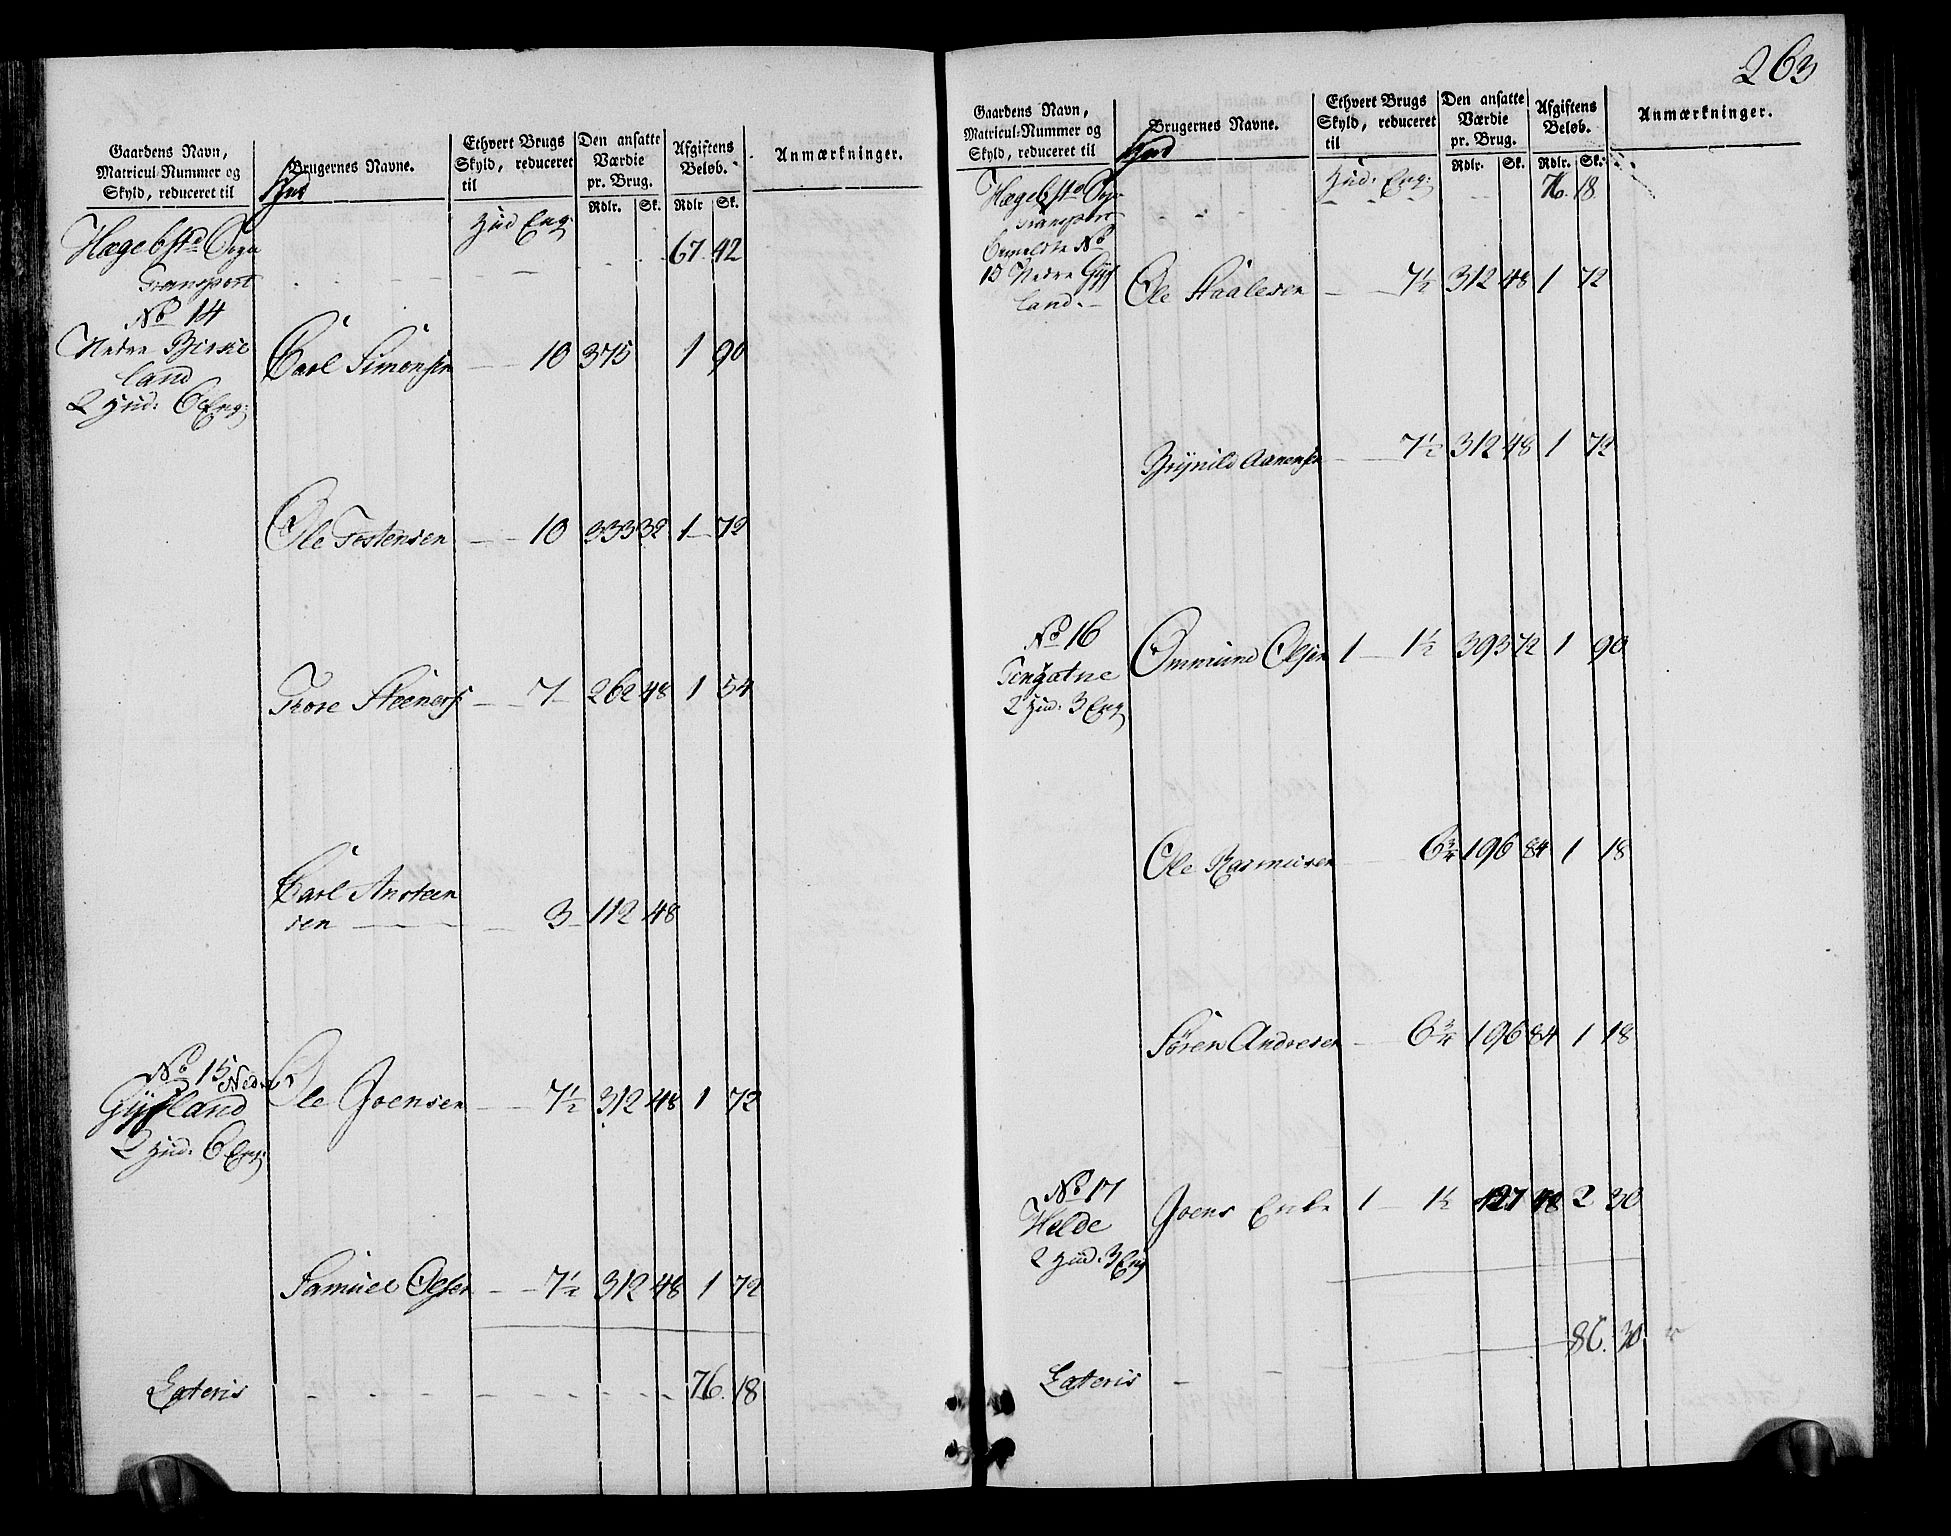 Gaardens Navn,
Matricul-Nummer og
Skyld, reduceret til
Brugernes Navne.
Ethvert Brugs
Skyld, reduceret
til
Den ansatte
Værdie
pr. Brug.
Rdlr. Sk.
Afgiftens
Beløb.
Rdlr Sk.
Anmærkninger.
Hud Eng.
Hægebstd Sogn
Transport 67. 42
No 14
Nedre Birke
land
2 Hud: 6 Eng:
Carl Simonsen 10 375 1 90
Ole Tostensen 10 333 32 1 72
Tore Steeners 7 262 48 1 54
Carl Ansteen
sen 3 112 48
No 15 Nedre
Gysland
2 Hud: 6 Eng:
Ole Joensen 7½ 312 48 1 72
Samuel Olsen 7½ 312 48 1 72
Lateris 76. 18
263
Gaardens Navn,
Matricul-Nummer og
Skyld, reduceret til
Brugernes Navne.
Ethvert Brugs
Skyld, reduceret
til
Den ansatte
Værdie
pr. Brug.
Rdlr. Sk.
Afgiftens
Beløb.
Rdlr. Sk.
Anmærkninger.
Hud: Eng:
Hægebstd Sog:
Transport 76. 18
Bemeldte No
15 Nedre Gys
land.
Ole Staalesen 7½ 312 48 1 72
Brynild Aanensen 7½ 312 48 1 72
No 16
Tengatne
2 Hud: 3 Eng
Ommund Olsen 1 1½ 393 72 1 90
Ole Rasmusen 6¾ 196 84 1 18
Sören Andresen 6¾ 196 84 1 18
No 17
Helde
2 Hud: 3 Eng
Joens Enke 1 1½ 427 48 2 30
86. 30
Lateris